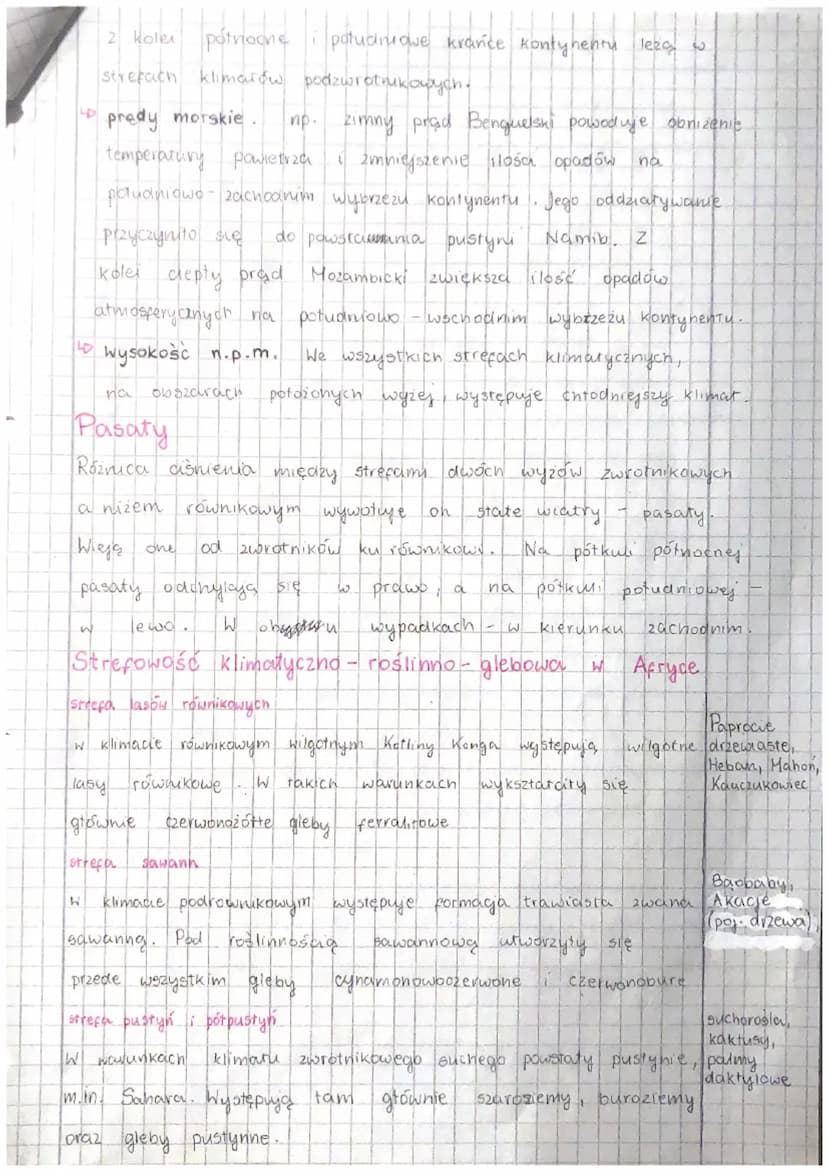 z kolei północne i południowe krańce kontynentu leżą w
strefach klimatów podzwrotnikowych.
prądy morskie. np. zimny prąd Benguelski powoduje obniżenie
temperatury powietrza i zmniejszenie ilości opadów na
południowo-zachodnim wybrzeżu kontynentu. Jego oddziaływanie
przyczyniło się do powstawania pustyni Namib. Z
kolei ciepły prąd Mozambicki zwiększa ilość opadów
atmosferycznych na południowo-wschodnim wybrzeżu kontynentu.
wysokość n.p.m. We wszystkich strefach klimatycznych,
na obszarach położonych wyżej, występuje chłodniejszy klimat.
Pasaty
Różnica ciśnienia między strefami dwóch wyżów zwrotnikowych
a niżem równikowym wywołuje on stałe wiatry - pasaty.
Wieją one od zwrotników ku równikowi. Na półkuli północnej
pasaty odchylają się w prawo, a na półkuli południowej -
w lewo. W obu wypadkach - w kierunku zachodnim.
Strefowość klimatyczno-roślinno-glebowa w Afryce
strefa lasów równikowych
w klimacie równikowym wilgotnym Kotliny Konga występują wilgotne
lasy równikowe. W takich warunkach wykształciły się
głównie czerwonożółte gleby ferralitowe
Paprocie
drzewiaste,
Heban, Mahoń,
Kauczukowiec
strefa sawann
W klimacie podrównikowym występuje formacja trawiasta zwana
sawanną. Pod roślinnością sawannową utworzyły się
przede wszystkim gleby cynamonowoczerwone i czerwonobure
Baobaby,
Akacje
(poj. drzewa)
strefa pustyń i półpustyń
W warunkach klimatu zwrotnikowego suchego powstały pustynie,
m.in. Sahara. Występują tam głównie szaroziemy, buroziemy
oraz gleby pustynne.
suchorośla,
kaktusy,
palmy
daktylowe